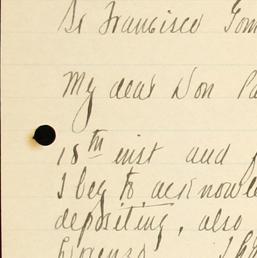 Sr Francisco Gom
My dear Don Pa
18th inst and
I beg to acknowle
depositing, also
Lorenzo